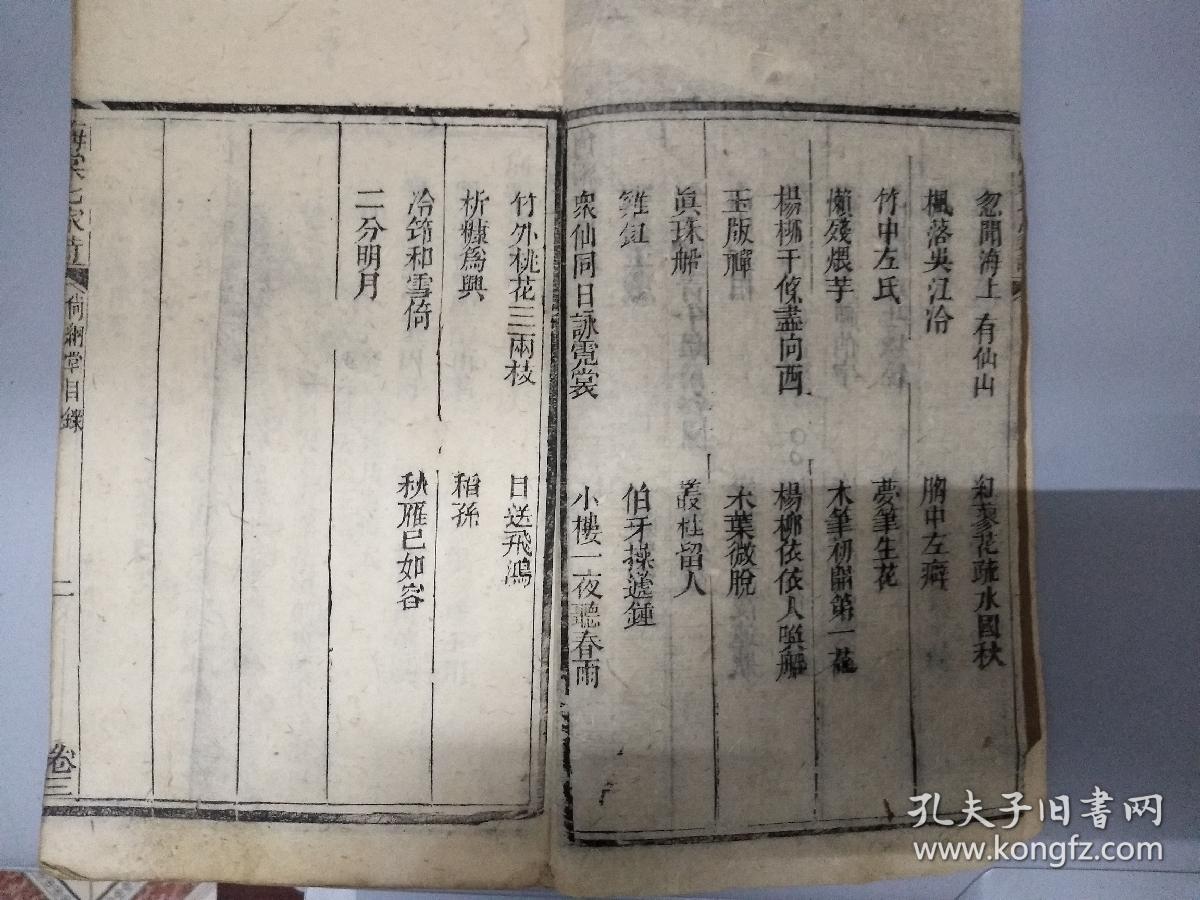 忽聞海上有仙山
紅蓼花疏水國秋
楓落吳江冷
胸中左癖
竹中左氏
夢筆生花
懶殘煨芋
木筆初開第一花
楊柳千條盡向西
楊柳依依人喚船
玉版禪
木葉微脫
眞珠船
叢桂留人
雞
伯牙操遞鍾
衆仙同日詠霓裳
小樓一夜聽春雨
竹外桃花三兩枝
目送飛鴻
析糠爲輿
稻孫
冷筇和雪倚
秋雁已如客
二分明月
七家
尚絅堂目錄
二
卷三
孔夫子旧书网
www.kongfz.com